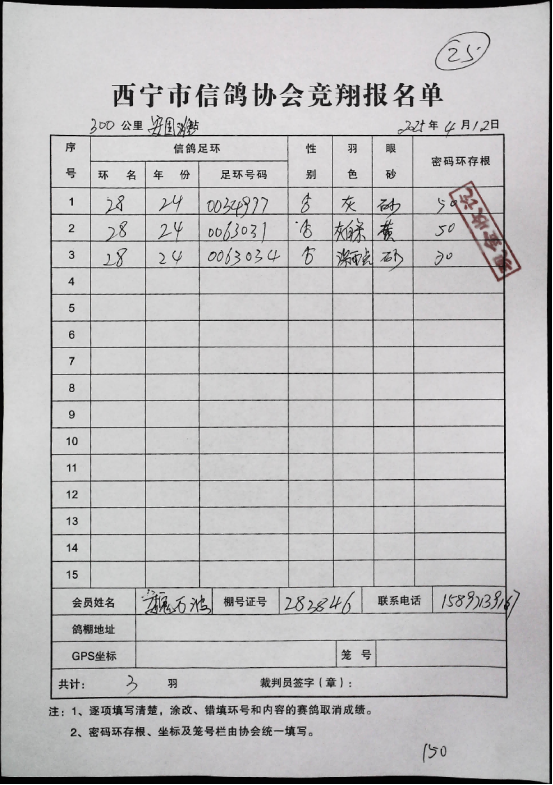 25
西宁市信鸽协会竞翔报名单
300 公里 2025年4月12日
序号 信鸽足环 性别 羽色 眼砂 密码环存根
环名 年份 足环号码
1 28 24 0034977 灰 砂 50
2 28 24 0063031 黄 50
3 28 24 0063034 砂
4
5
6
7
8
9
10
11
12
13
14
15
会员姓名 棚号证号 282846 联系电话
鸽棚地址
GPS坐标 笼号
共计： 3 羽 裁判员签字（章）：
注：1、逐项填写清楚，涂改、错填环号和内容的赛鸽取消成绩。
2、密码环存根、坐标及笼号栏由协会统一填写。
150